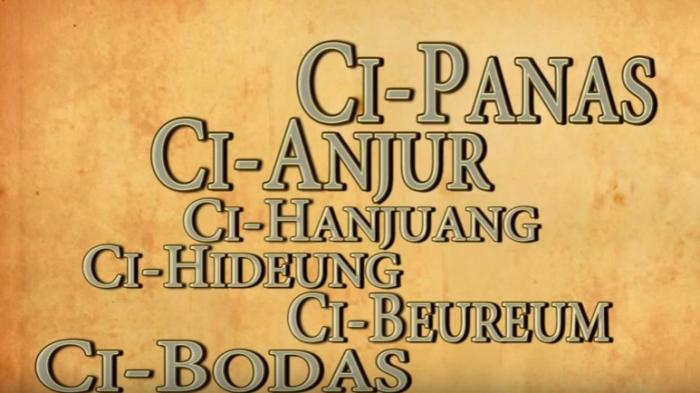 Ci-Panas
Ci-Anjur
Ci-Hanjuang
Ci-Hideung
Ci-Beureum
Ci-Bodas